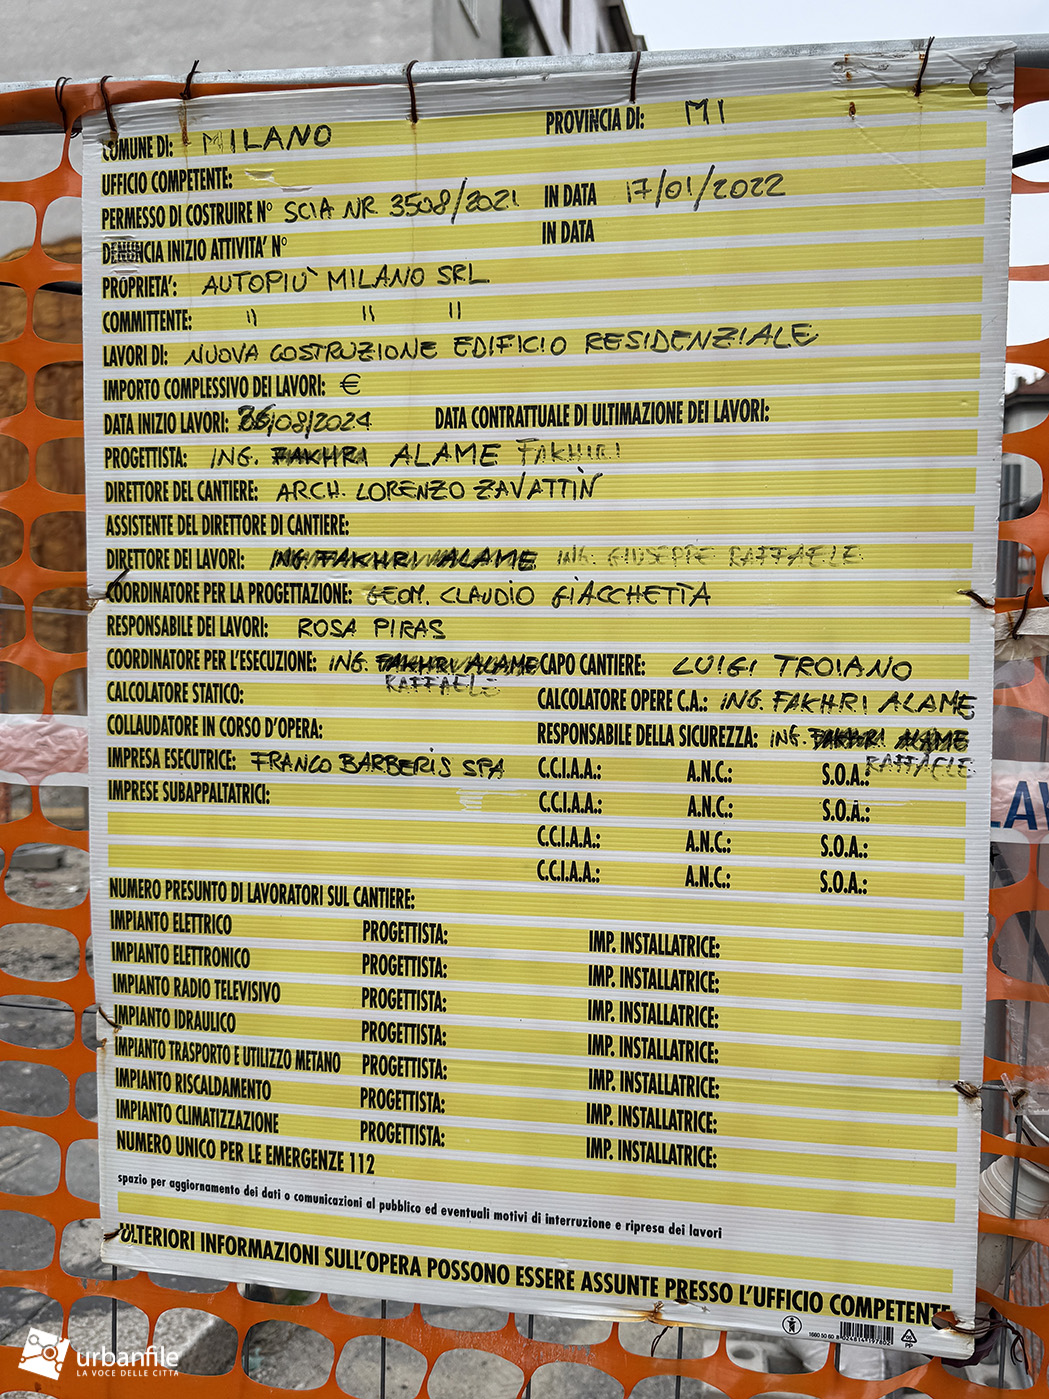 COMUNE DI: MILANO PROVINCIA DI: MI
UFFICIO COMPETENTE:
PERMESSO DI COSTRUIRE N° SCIA NR. 3508/2021 IN DATA 17/01/2022
DENUNCIA INIZIO ATTIVITA' N° IN DATA
PROPRIETA': AUTOPIÙ MILANO SRL
COMMITTENTE: " " "
LAVORI DI: NUOVA COSTRUZIONE EDIFICIO RESIDENZIALE
IMPORTO COMPLESSIVO DEI LAVORI: €
DATA INIZIO LAVORI: /08/2024 DATA CONTRATTUALE DI ULTIMAZIONE DEI LAVORI:
PROGETTISTA: ING. FAKHRI ALAME FAKHIRI
DIRETTORE DEL CANTIERE: ARCH. LORENZO ZAVATTIN
ASSISTENTE DEL DIRETTORE DI CANTIERE:
DIRETTORE DEI LAVORI: ING. FAKHRI ALAME ING. GIUSEPPE RAFFAELE
COORDINATORE PER LA PROGETTAZIONE: GEOM. CLAUDIO GIACCHETTA
RESPONSABILE DEI LAVORI: ROSA PIRAS
COORDINATORE PER L'ESECUZIONE: ING. FAKHRI ALAME CAPO CANTIERE: LUIGI TROIANO
RAFFAELE
CALCOLATORE STATICO: CALCOLATORE OPERE C.A.: ING. FAKHRI ALAME
COLLAUDATORE IN CORSO D'OPERA: RESPONSABILE DELLA SICUREZZA: ING. FAKHRI ALAME
RAFFAELE
IMPRESA ESECUTRICE: FRANCO BARBERIS SPA C.C.I.A.A.: A.N.C.: S.O.A.:
IMPRESE SUBAPPALTATRICI: C.C.I.A.A.: A.N.C.: S.O.A.:
C.C.I.A.A.: A.N.C.: S.O.A.:
C.C.I.A.A.: A.N.C.: S.O.A.:
NUMERO PRESUNTO DI LAVORATORI SUL CANTIERE:
IMPIANTO ELETTRICO PROGETTISTA: IMP. INSTALLATRICE:
IMPIANTO ELETTRONICO PROGETTISTA: IMP. INSTALLATRICE:
IMPIANTO RADIO TELEVISIVO PROGETTISTA: IMP. INSTALLATRICE:
IMPIANTO IDRAULICO PROGETTISTA: IMP. INSTALLATRICE:
IMPIANTO TRASPORTO E UTILIZZO METANO PROGETTISTA: IMP. INSTALLATRICE:
IMPIANTO RISCALDAMENTO PROGETTISTA: IMP. INSTALLATRICE:
IMPIANTO CLIMATIZZAZIONE PROGETTISTA: IMP. INSTALLATRICE:
NUMERO UNICO PER LE EMERGENZE 112
spazio per aggiornamento dei dati o comunicazioni al pubblico ed eventuali motivi di interruzione e ripresa dei lavori
ULTERIORI INFORMAZIONI SULL'OPERA POSSONO ESSERE ASSUNTE PRESSO L'UFFICIO COMPETENTE
PP
LAV
urbanfile
LA VOCE DELLE CITTÀ